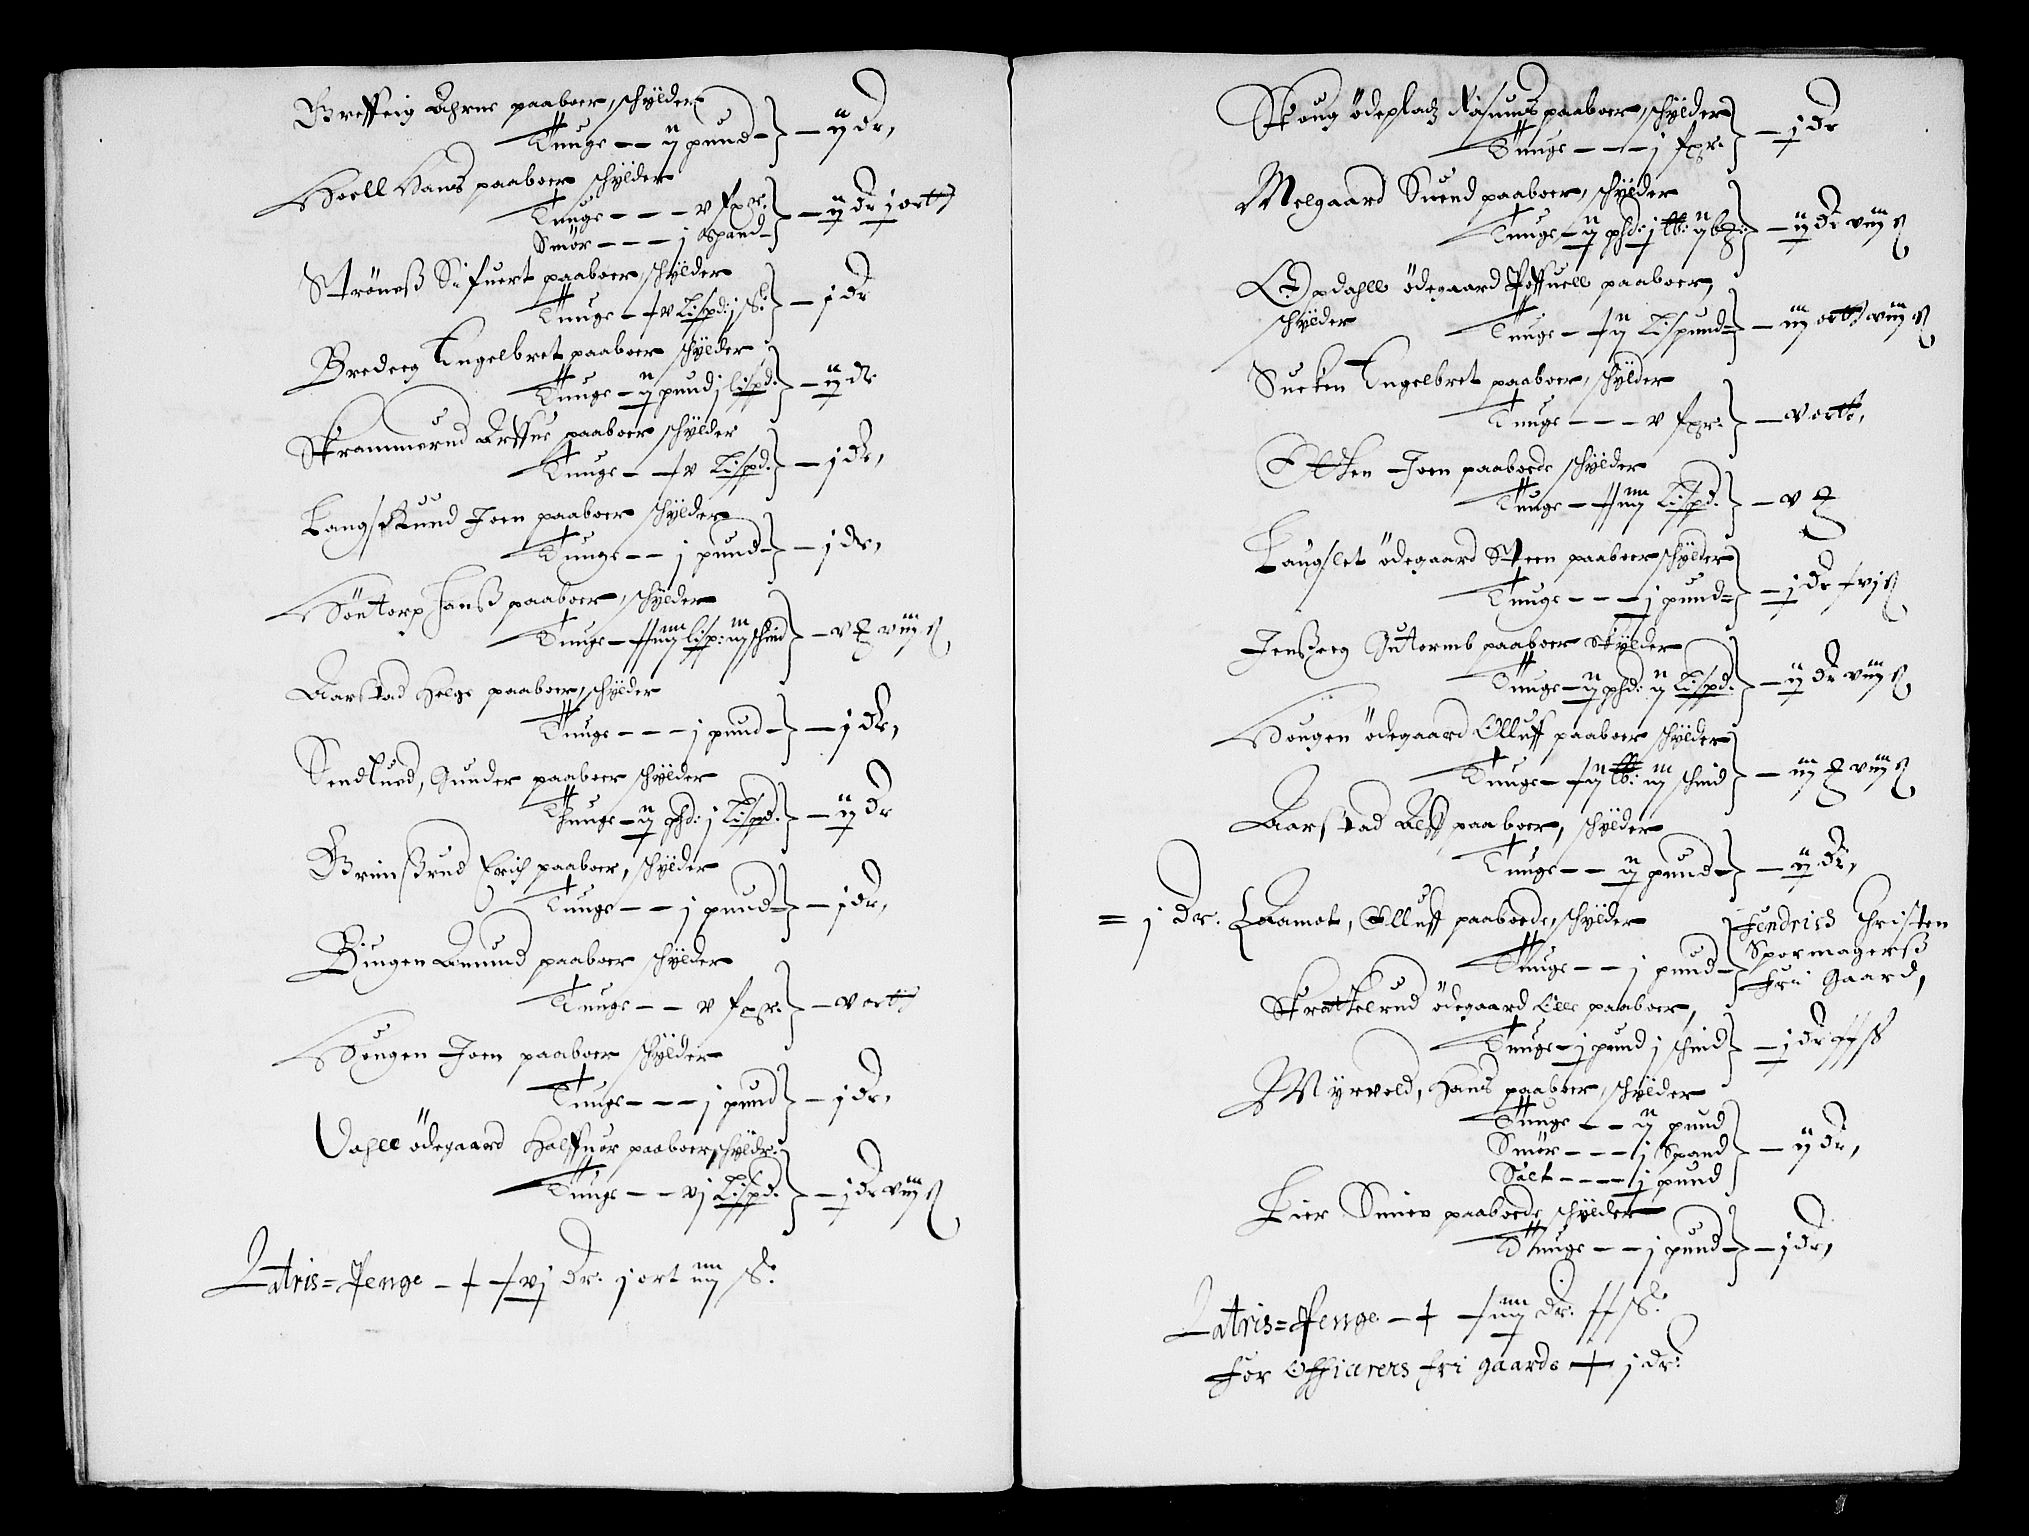 Greffeig Ahrne paaboer, schylder
Tunge - - ij pund - - ij dr,
Hoell Hans paaboer schylder
Tunge - - - v fxr:
Smör - - - j Spand - - ij dr j ortt
Strönes Sifuert paaboer, schylder
Tunge - + v Lispd: j s: - j dr
Bredeeg Engelbret paaboer schylder
Tunge - ij pund j lispd: - ij dr
Skrammerud paaboer schylder
Tunge - + v Lispd: - j dr,
Joen paaboer schylder
Tunge - - j pund - - j dr,
Söntorp Hanß paaboer, schylder
Tunge - iiij lisp: iij schind - v viij ß
Aarstad Helge paaboer, schylder
Tunge - - - j pund - - j dr,
Gunder paaboer schylder
Thunge - ij phd: j Lispd: - ij dr
Grimßrud Erich paaboer, schylder
Tunge - - j pund - - j dr,
Bingen Amund paaboer schylder
Tunge - - v fxr: - v ort
Hougen Joen paaboer schylder
Tunge - - - j pund - j dr,
Dahll ödegaard Halffuor paaboer, schyldr:
Tunge - - vj Lispd: - j dr viij ß
Latris = Penge - + + vj dr: j ort iiij s:
Skoug ödeplads Rasmus paaboer, schylder
Tunge - - - j fxr: - j dr
Melgaard Suend paaboer, schylder
Tunge - ij phd: j lb: ij - ij dr viij ß
Opdahll ödegaard Poffuell paaboer,
schylder Tunge - + ij Lispund - iij ortt viij ß
Engelbret paaboer, schylder
Tunge - - - v fxr: - v ortt,
Joen paaboede schylder
Tunge - iiij Lispd: - v
Laugslet ödegaard Steen paaboer, schylder
Tunge - - - j pund - - j dr + vj ß
Jenßeeg Guttormb paaboer schylder
Tunge - ij phd: ij Lispd: - ij dr viij ß
Hougen ödegaard Olluff paaboer schylder
Tunge - + ij lb: iij schind - iij viij ß
Aarstad Alff paaboer, schylder
Tunge - - ij pund - - ij dr,
= j dr: Aamot, Olluff paaboede, schylder
Tunge - - j pund -
Fendrich Christen
Spormagerß
Fri Gaard,
Skrattelrud ödegaard Olle paaboer,
Tunge - j pund j schind - j dr
Myrvold, Hans paaboer, schylder
Tunge - - ij pund
Smör - - - j Spand - ij dr,
Salt - - - - j pund
Lier Simen paaboede schylder
Tunge - - j pund - - j dr,
Latris = Penge - + + iiij dr: s:
For Officerers fri gaarde + j dr: